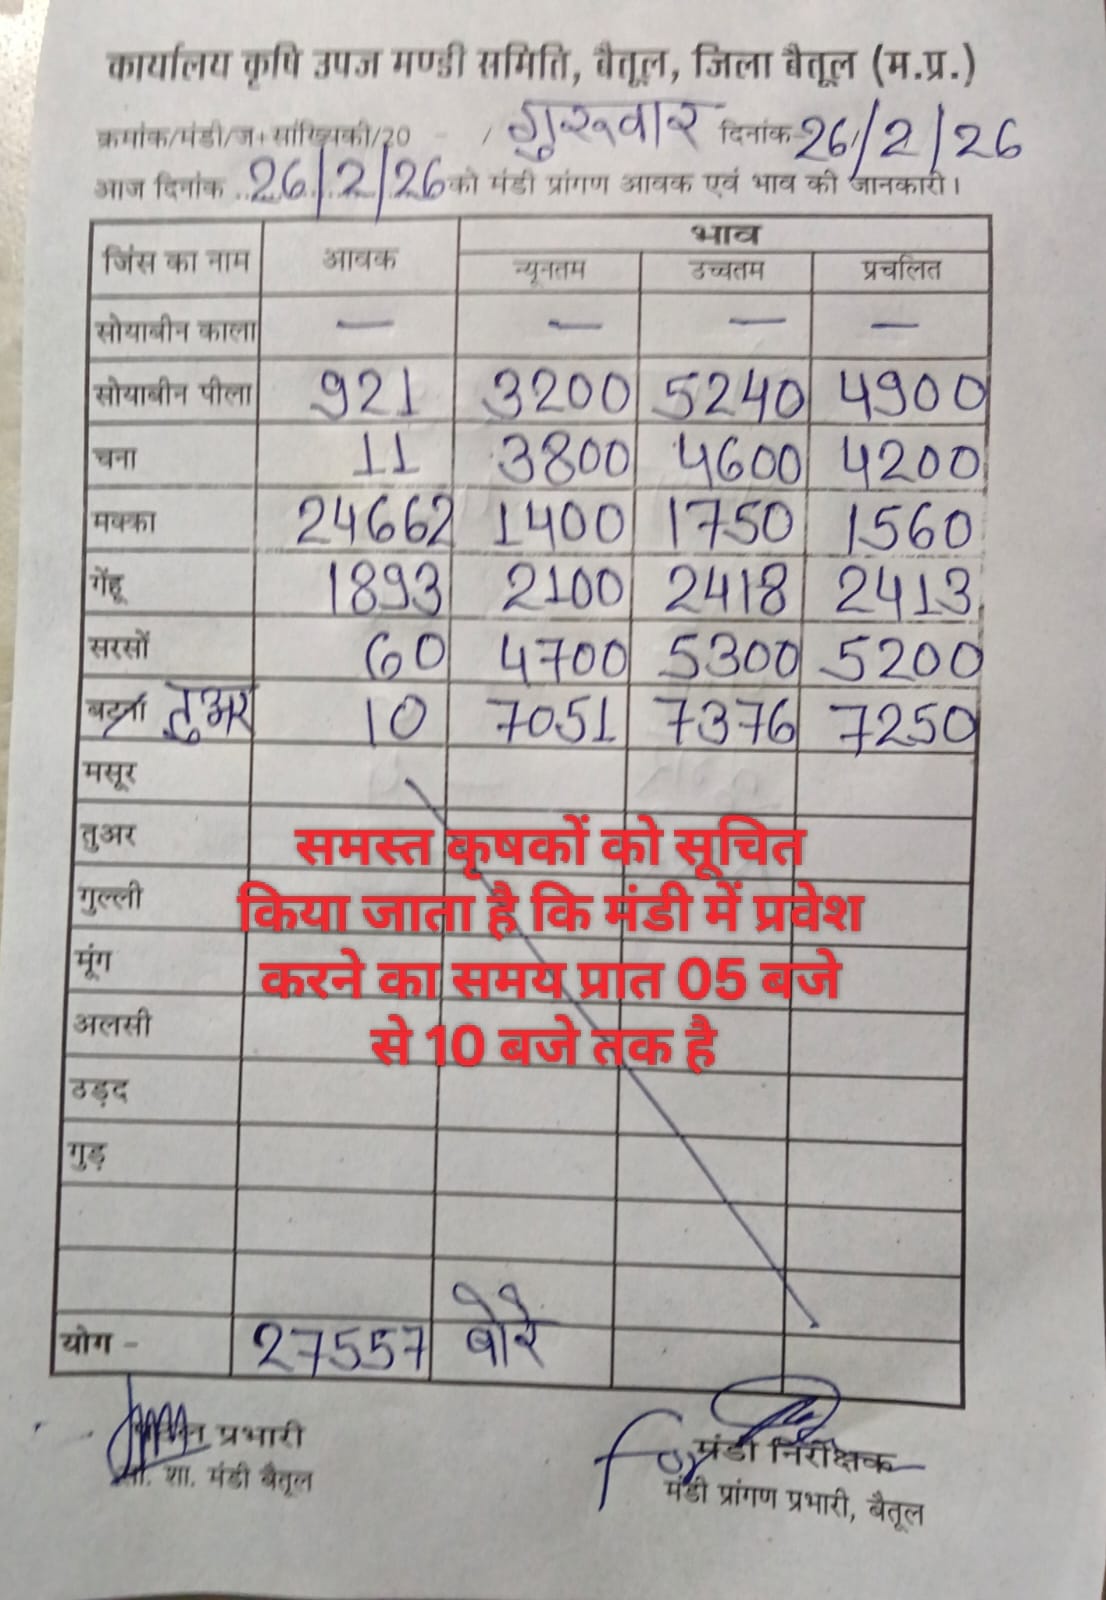 कार्यालय कृषि उपज मण्डी समिति, बैतूल, जिला बैतूल (म.प्र.)
क्रमांक/मंडी/ज+सांख्यिकी/20 - / गुरूवार दिनांक 26/2/26
आज दिनांक 26/2/26 को मंडी प्रांगण आवक एवं भाव की जानकारी।
जिंस का नाम आवक भाव
न्यूनतम उच्चतम प्रचलित
सोयाबीन काला — — — —
सोयाबीन पीला 921 3200 5240 4900
चना 11 3800 4600 4200
मक्का 24662 1400 1750 1560
गेंहू 1893 2100 2418 2413
सरसों 60 4700 5300 5200
तुअर 10 7051 7376 7250
मसूर
तुअर
समस्त कृषकों को सूचित
गुल्ली
किया जाता है कि मंडी में प्रवेश
मूंग
करने का समय प्रात 05 बजे
अलसी
से 10 बजे तक है
उड़द
गुड़
योग - 27557 बोरे
प्रभारी
शा. मंडी बैतूल
for मंडी निरीक्षक
मंडी प्रांगण प्रभारी, बैतूल